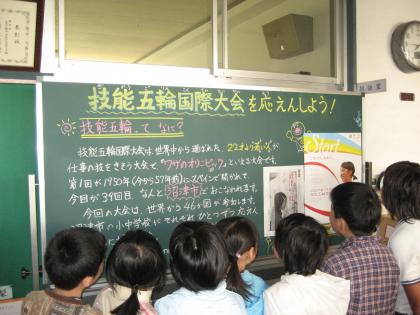 表彰状
技能五輪国際大会を応えんしよう！
技能五輪って なに？
技能五輪国際大会は、世界中から選ばれた、22才より若い人が
仕事の技をきそう大会で、"ワザのオリンピック"といえる大会です。
第1回が1950年(今から57年前)にスペインで開かれて、
今回が39回目。なんと沼津市でおこなわれます。
今回の大会は、世界から46ヶ国が参加します。
沼津市の小中学校が それぞれ ひとつずつ 応えん
Start